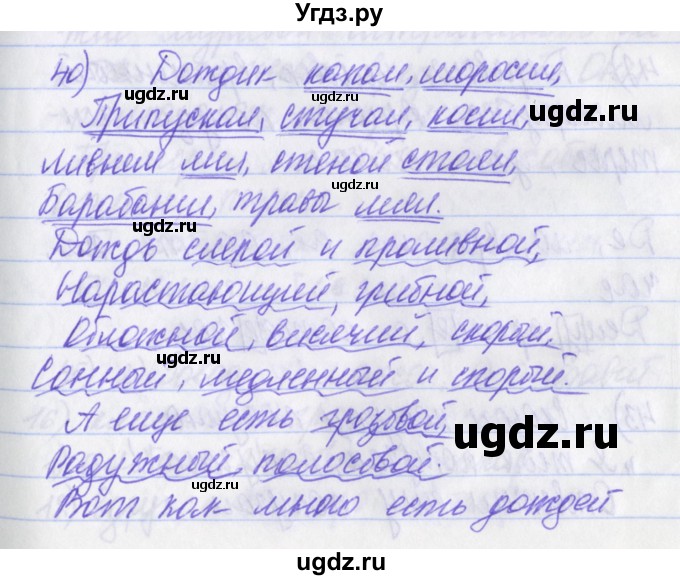 Угдз.ру
40) Дождик капал, моросил,
Припускал, стучал, косил,
ливнем лил, стеной стоял,
Барабанил, травы мял.
Дождь слепой и проливной,
Нарастающий, грибной,
Обложной, висячий, скорый.
Сонный, медленный и спорый.
А еще есть грозовой,
Радужный полосовой.
Вот как много есть дождей
ugdz.ru
ugdz.ru
ugdz.ru
ugdz.ru
ugdz.ru
ugdz.ru
ugdz.ru
ugdz.ru
ugdz.ru
ugdz.ru
ugdz.ru